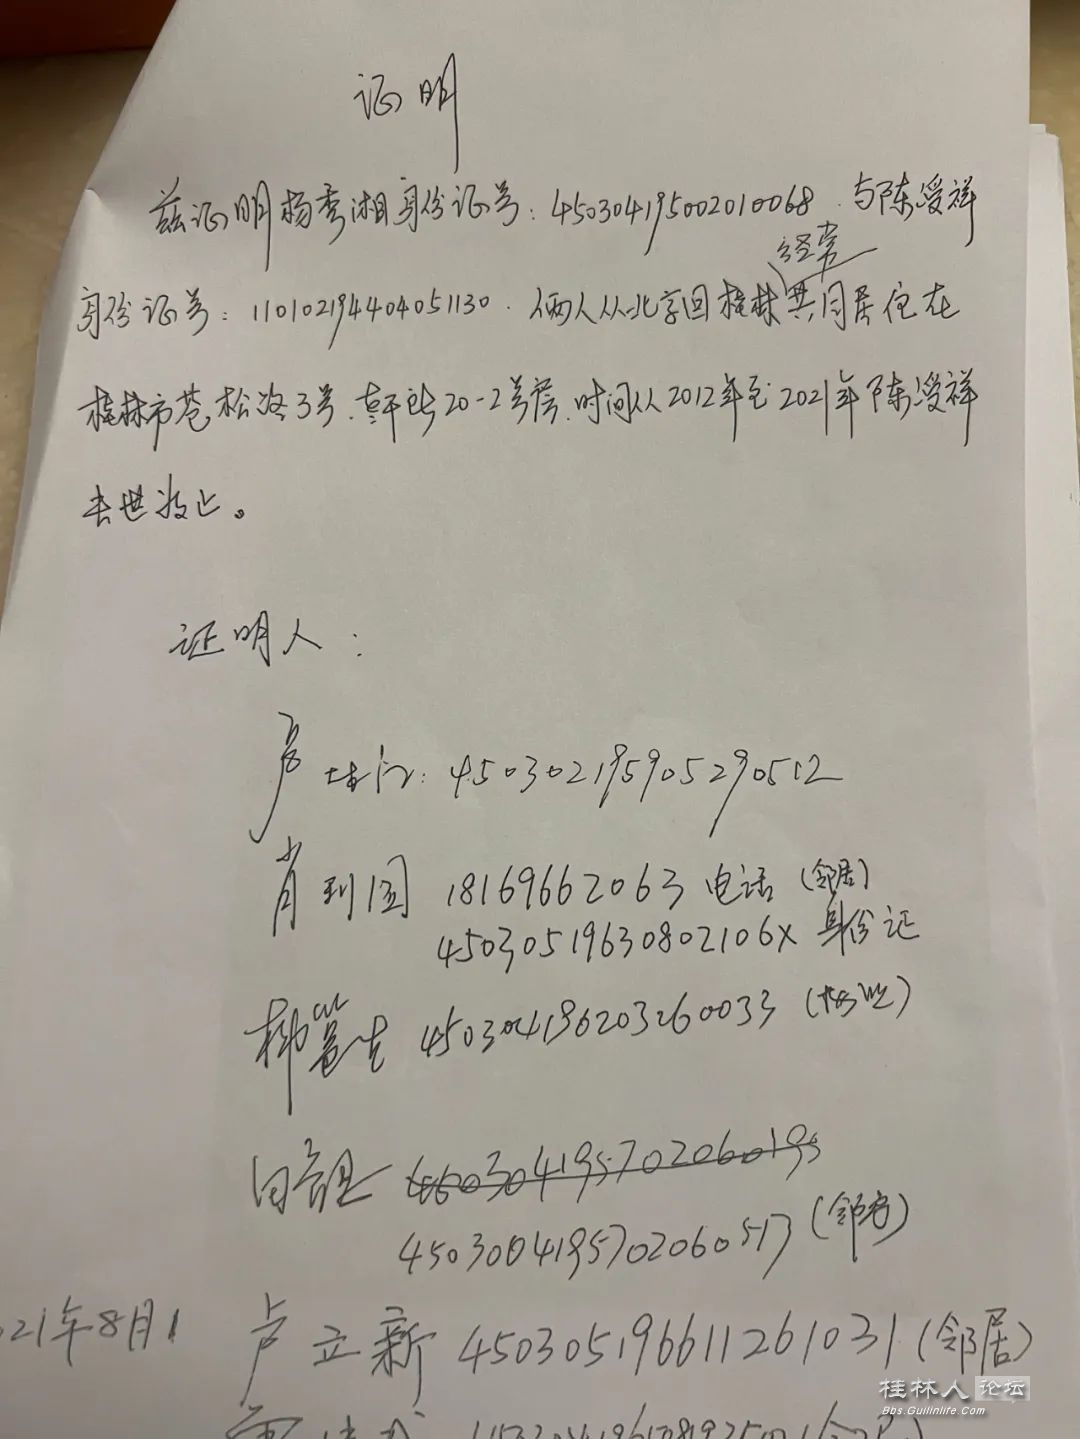 证明
兹证明杨秀湘身份证号：450304195002010068.与陈绶祥
经常
身份证号：110102194404051130.俩人从北京回桂林共同居住在
桂林市苍松路3号.20-2号房.时间从2012年至2021年陈绶祥
去世为止。
证明人：
卢：450302195905290512
肖 18169662063 电话（邻居）
45030519630802106X 身份证
450304196203260033
白
4503004195702060517（邻居）
21年8月1
卢立新 450305196611261031（邻居）
桂林人论坛
Bbs.Guilinlife.Com